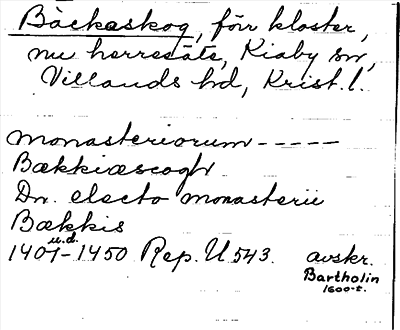 Bäckaskog, förr kloster,
nu herresäte, Kiaby sn,
Villands hd, Krist. l.
monasteriorum -----
Bækkiæscogh
Dn. electo monasterii
Bækkis
u.d.
1401-1450 Rep. U. 543. avskr.
Bartholin
1600-t.